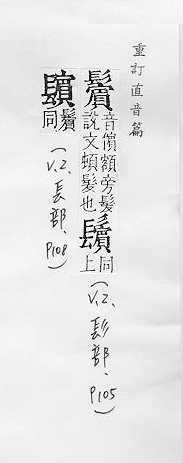 重訂直音篇
鬢音儐額旁髮說文頰髮也同上(V.2,髟部,P105)
鬢同(V.2.長部,P108)